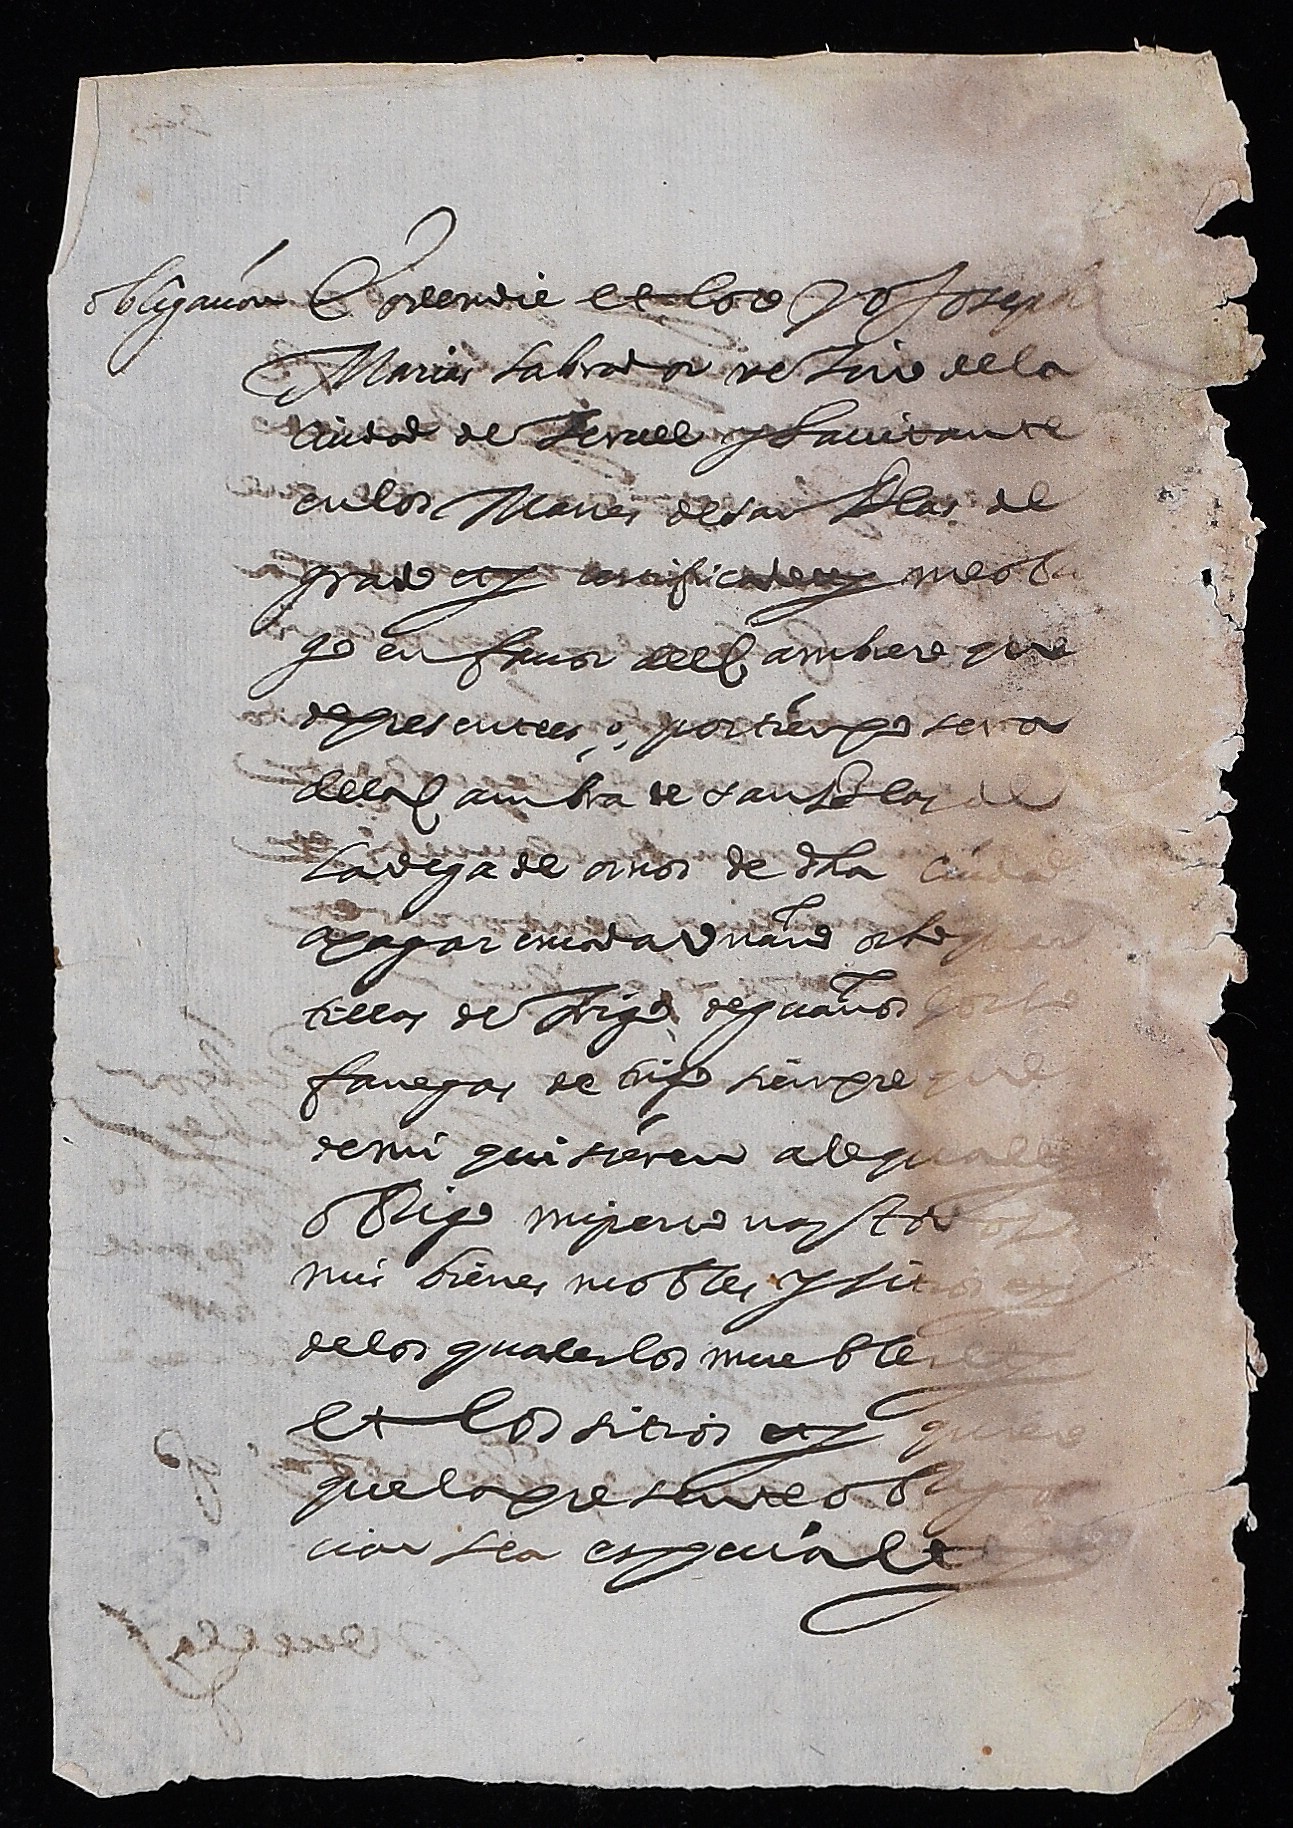 obligacion Eodem die et loco yo Joseph
Marias labrador vecino de la
ciudad de Teruel y havitante
en los Mases de san Blas de
grado etz certificado etz me obli
go en favor del Cambrero que
de presente es, o, por tiempo sera
de la Cambra de san Blas de
la dega de onor de dha ciudad
a pagar en cada un año ocho quar
tillas de trigo de quatro
fanegas de trigo siempre que
de mi quisieren a lo qual
obligo mi persona y todos
mis bienes mobles y sitios etz
de los quales los muebles etz
et los sitios etz quiero
que la presente obliga
cion sea especial etz